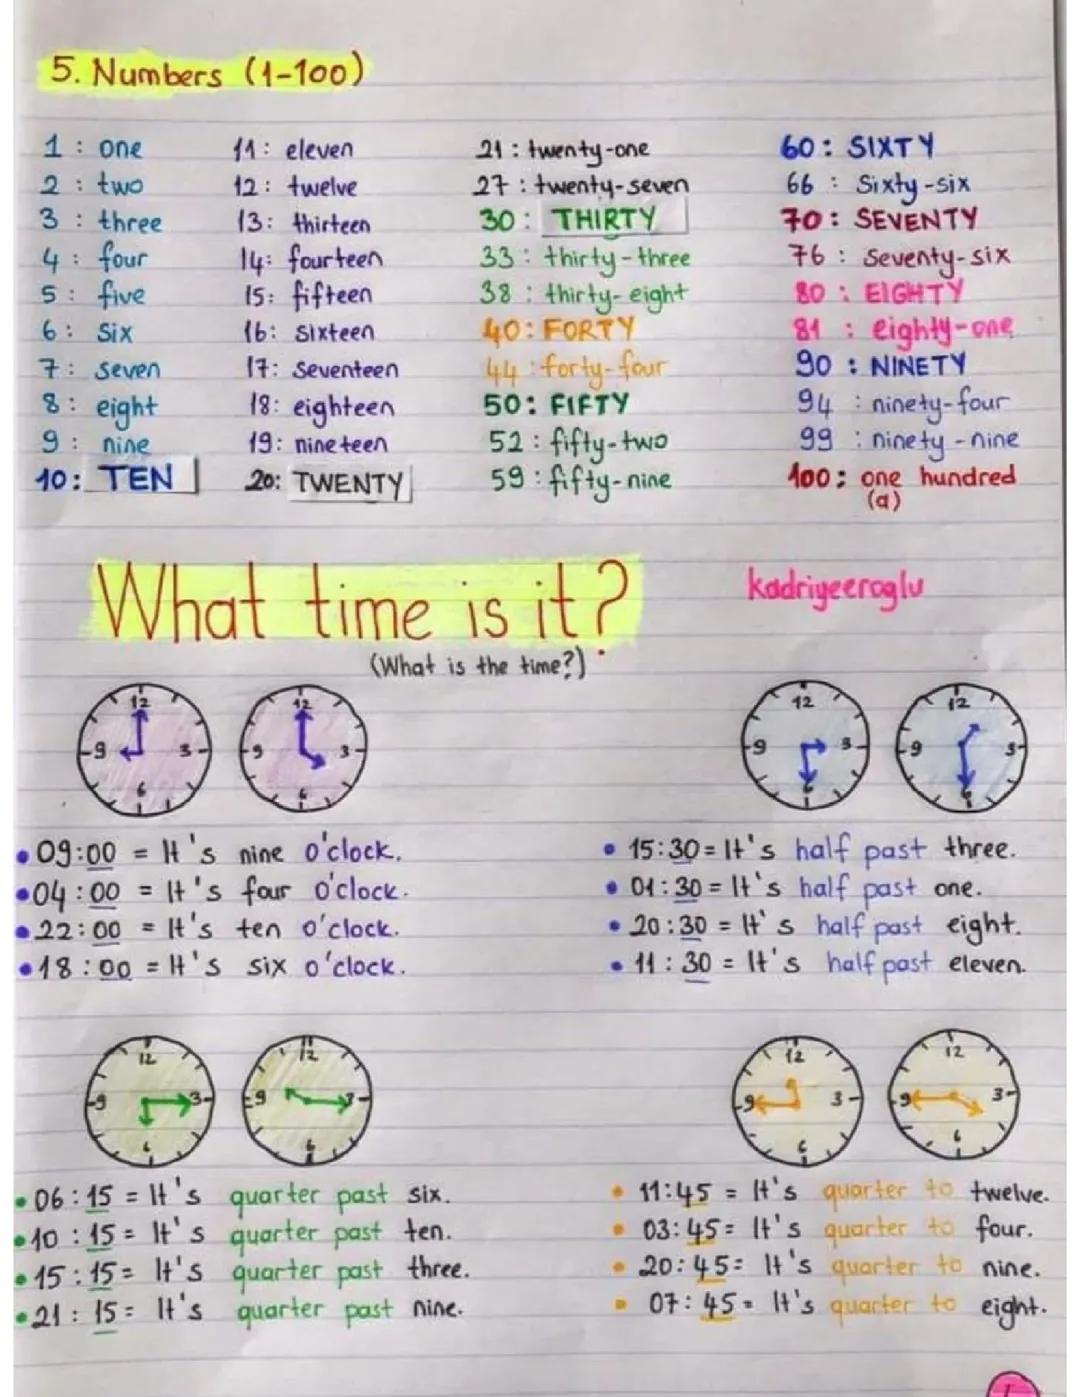 5. Numbers (1-100)
1 : one
2 : two
3 : three
4 : four
5 : five
6 : six
7 : seven
8 : eight
9 : nine
10 : TEN
11 : eleven
12 : twelve
13 : thirteen
14 : fourteen
15 : fifteen
16 : sixteen
17 : seventeen
18 : eighteen
19 : nineteen
20 : TWENTY
21 : twenty-one
27 : twenty-seven
30 : THIRTY
33 : thirty-three
38 : thirty-eight
40 : FORTY
44 : forty-four
50 : FIFTY
52 : fifty-two
59 : fifty-nine
60 : SIXTY
66 : Sixty-six
70 : SEVENTY
76 : Seventy-six
80 : EIGHTY
81 : eighty-one
90 : NINETY
94 : ninety-four
99 : ninety-nine
100 : one hundred
(a)
What time is it?
(What is the time?)
kadriyeeroglu
12
9 3
6
12
9 3
6
12
9 3
6
12
9 3
6
• 09:00 = It's nine o'clock.
• 04:00 = It's four o'clock.
• 22:00 = It's ten o'clock.
• 18:00 = It's six o'clock.
• 15:30 = It's half past three.
• 01:30 = It's half past one.
• 20:30 = It's half past eight.
• 11:30 = It's half past eleven.
12
9 3
6
12
9 3
6
12
9 3
6
12
9 3
6
• 06:15 = It's quarter past six.
• 10:15 = It's quarter past ten.
• 15:15 = It's quarter past three.
• 21:15 = It's quarter past nine.
• 11:45 = It's quarter to twelve.
• 03:45 = It's quarter to four.
• 20:45 = It's quarter to nine.
• 07:45 = It's quarter to eight.